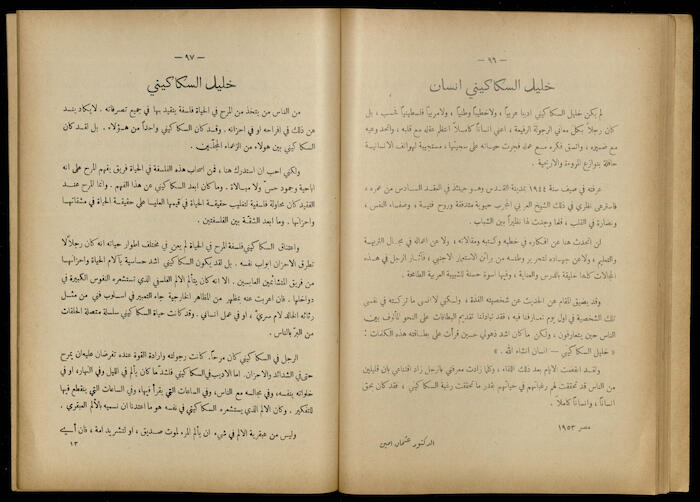 — ٩٦ —
خليل السكاكيني انسان
لم يكن خليل السكاكيني اديبا عربياً ، ولاخطيباً وطنياً ، ولامربياً فلسطينياً فحسب ، بل
كان رجلاً بكل معاني الرجولة الرفيعة ، اعني انساناً كاملاً انتظر عقله مع قلبه ، واتحد وعيه
مع ضميره ، واتسق فكره مع عمله فجرت حياته على سجيتها ، مستجيبة لهواتف الانسانية
حافلة بنوازع المروءة والاريحية .
عرفته في صيف سنة ١٩٤٤ بمدينة القدس وهو حينئذ في العقد السادس من عمره ،
فاسترعى نظري في ذلك الشيخ العربي المجرب حيوية متدفقة وروح فتية ، وصفاء النفس ،
ونضارة في القلب ، قلما وجدت لها نظيراً بين الشباب .
لن اتحدث هنا عن افكاره في خطبه وكتبه ومقالاته ، ولا عن اعماله في مجال التربية
والتعليم ، ولاعن جهاده لتحرير وطنه من براثن الاستعمار الاجنبي ، فآثار الرجل في هذه
المجالات كلها خليقة بالدرس والعناية ، وفيها اسوة حسنة للشبيبة العربية الطامحة .
وقد يضيق المقام عن الحديث عن شخصيته الفذة ، ولكني لاانس ما تركته في نفسي
تلك الشخصية في اول يوم تعارفنا فيه ، فقد تبادلنا تقديم البطاقات على النحو المألوف بين
الناس حين يتعارفون ، ولكن ما كان اشد ذهولي حين قرأت على بطاقته هذه الكلمات :
« خليل السكاكيني — انسان انشاء الله . »
ولقد انقضت الايام بعد ذلك اللقاء ، وكلما زادت معرفتي بالرجل زاد اقتناعي بان قليلين
من الناس قد تحققت لهم رغباتهم في حياتهم بقدر ما تحققت رغبة السكاكيني ، فقد كان بحق
انساناً ، وانساناً كاملاً .
مصر ١٩٥٣
الدكتور عثمان امين
— ٩٧ —
خليل السكاكيني
من الناس من يتخذ من المرح في الحياة فلسفة يتقيد بها في جميع تصرفاته . لايكاد يند
عن ذلك في افراحه او في احزانه . وقد كان السكاكيني واحداً من هؤلاء . بل لقد كان
السكاكيني بين هولاء من الزعماء المجلّين .
ولكني احب ان استدرك هنا ، فمن اصحاب هذه الفلسفة في الحياة فريق يفهم المرح على انه
اباحية وجمود حسّ ولا مبالاة . وما كان ابعد السكاكيني عن هذا الفهم . وانما المرح عند
الفقيد كان محاولة فلسفية لتغليب حقيقة الحياة في قيمها العليا على حقيقة الحياة في مشقاتها
واحزانها . وما ابعد الشقّة بين الفلسفتين .
واعتناق السكاكيني فلسفة المرح في الحياة لم يعن في مختلف اطوار حياته انه كان رجلاً لا
تطرق الاحزان ابواب نفسه . بل لقد يكون السكاكيني اشد حساسية بآلام الحياة واحزانها
من فريق المتشائمين العابسين . الا انه كان يتألم الالم الفلسفي الذي تستشعره النفوس الكبيرة في
دواخلها . فان اعربت عنه بمظهر من المظاهر الخارجية جاء التعبير في اسلوب فني من مثل
رثائه الخالد لام سريّ ، او في عمل انساني . وقد كانت حياة السكاكيني سلسلة متصلة الحلقات
من البرّ بالناس .
الرجل في السكاكيني كان مرحاً . كانت رجولته وارادة القوة عنده تفرضان عليه ان يمرح
حتى في الشدائد والاحزان . اما الاديب في السكاكيني فلشد ما كان يألم في الليل وفي النهار ، او في
خلواته بنفسه ، وفي مجالسه مع الناس ، وفي الساعات التي يقرأ فيها ، وفي الساعات التي ينقطع فيها
للتفكير . وكان الالم الذي يستشعره السكاكيني في نفسه هو ما اعتدنا ان نسميه بالألم العبقري .
وليس من عبقرية الالم في شيء ان يألم المرء لموت صديق ، او لتشريد امة ، فان أسي
١٣